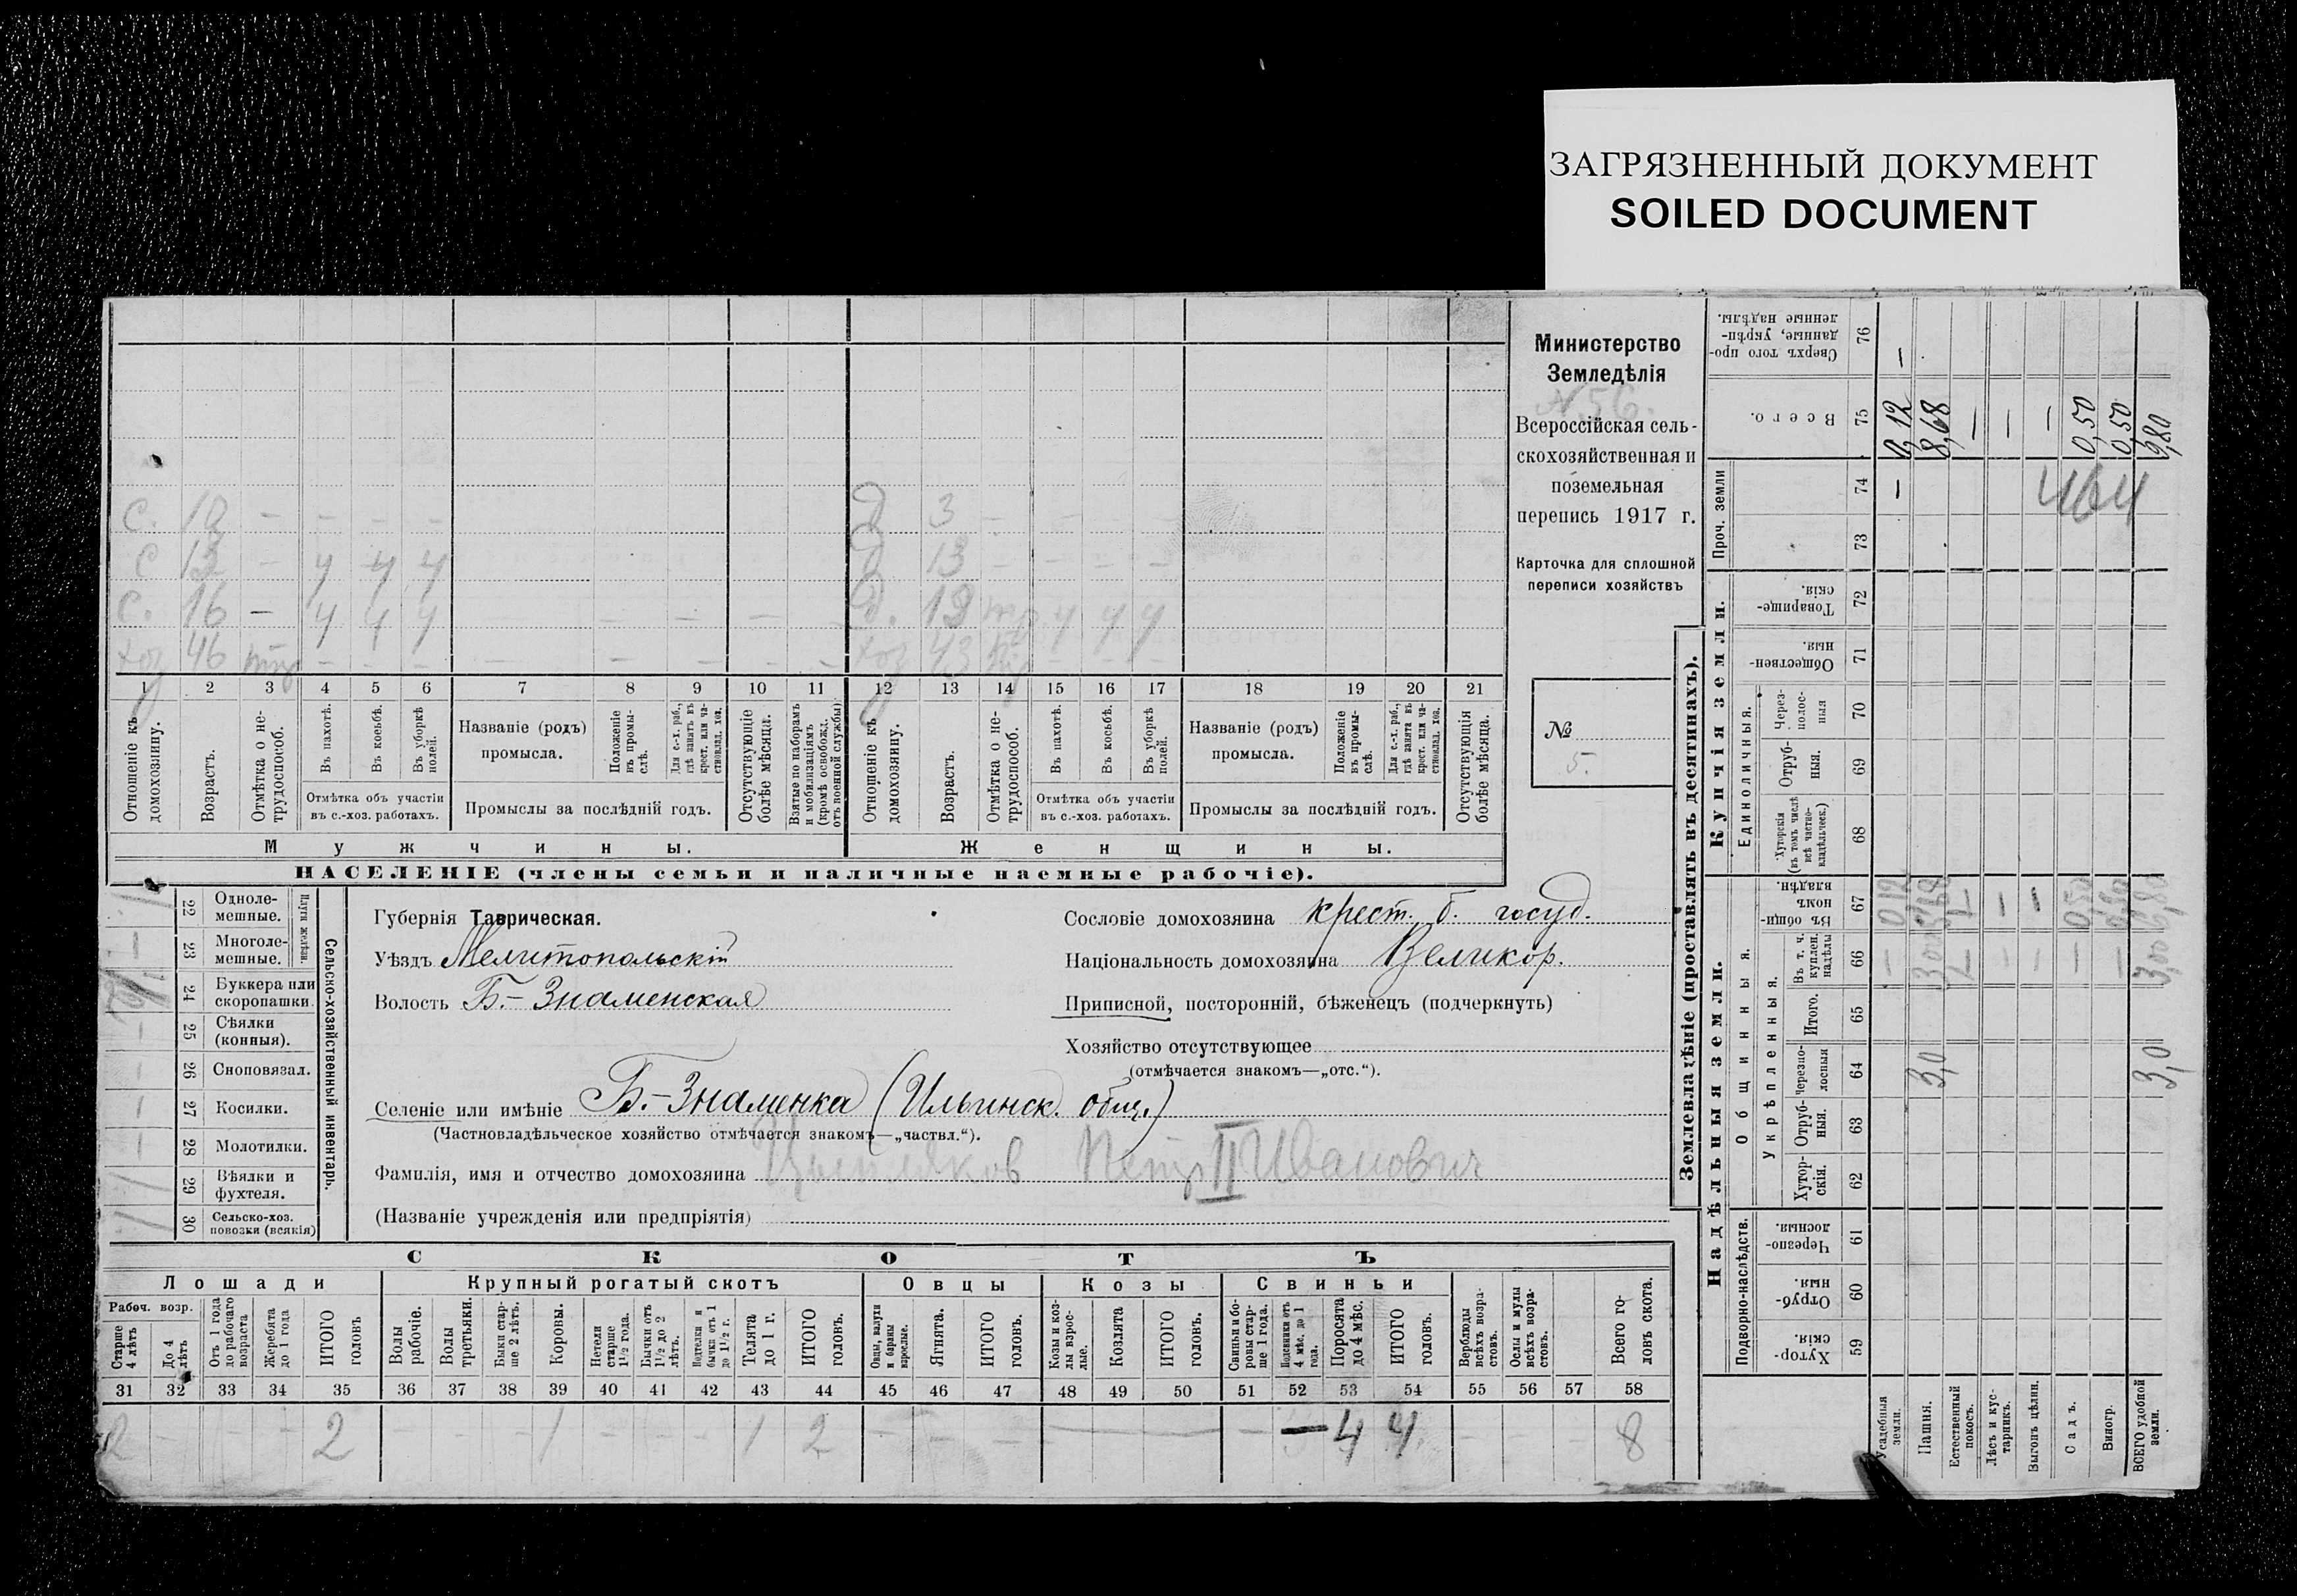 ЗАГРЯЗНЕННЫЙ ДОКУМЕНТ
SOILED DOCUMENT
Министерство
Земледѣлія
N 56.
Всероссійская сель-
скохозяйственная и
поземельная
перепись 1917 г.
Карточка для сплошной
переписи хозяйствъ
№
5.
с. 10 – – – –
с 13 – ч ч ч
с. 16 – ч ч ч
хоз 46 – – –
д 3 –
д 13 – – – –
д. ч ч ч
хоз 43
1 2 3 4 5 6 7 8 9 10 11 12 13 14 15 16 17 18 19 20 21
Отношеніе къ домохозяину.
Возрастъ.
Отмѣтка о не-трудоспособ.
Въ пахотѣ.
Въ косьбѣ.
Въ уборкѣ полей.
Отмѣтка объ участіи
въ с.-хоз. работахъ.
Названіе (родъ)
промысла.
Положеніе въ промы-слѣ.
Для с.-х. раб., гдѣ занятъ въ крест. или ча-стновлад. хоз.
Промыслы за послѣдній годъ.
Отсутствующіе болѣе мѣсяца.
Взятые по наборамъ и мобилизаціямъ (кромѣ освобожд. отъ военной службы)
Отношеніе къ домохозяину.
Возрастъ.
Отмѣтка о не-трудоспособ.
Въ пахотѣ.
Въ косьбѣ.
Въ уборкѣ полей.
Отмѣтка объ участіи
въ с.-хоз. работахъ.
Названіе (родъ)
промысла.
Положеніе въ промы-слѣ.
Для с.-х. раб., гдѣ занята въ крест. или ча-стновлад. хоз.
Промыслы за послѣдній годъ.
Отсутствующія болѣе мѣсяца.
Мужчины.
Женщины.
НАСЕЛЕНІЕ (члены семьи и наличные наемные рабочіе).
Сельско-хозяйственный инвентарь.
Плуги желѣзн.
22 Одноле-
мешные.
23 Многоле-
мешные.
24 Буккера или
скоропашки.
25 Сѣялки
(конныя).
26 Сноповязал.
27 Косилки.
28 Молотилки.
29 Вѣялки и
фухтеля.
30 Сельско-хоз.
повозки (всякія)
Губернія Таврическая.
Уѣздъ Мелитопольскій
Волость Б.-Знаменская
Сословіе домохозяина крест. б. госуд.
Національность домохозяина Великор.
Приписной, посторонній, бѣженецъ (подчеркнуть)
Хозяйство отсутствующее
(отмѣчается знакомъ—„отс.“).
Селеніе или имѣніе Б.-Знаменка (Ильинск. общ.)
(Частновладѣльческое хозяйство отмѣчается знакомъ—„частвл.“).
Фамилія, имя и отчество домохозяина Цыпляков Петр II Иванович
(Названіе учрежденія или предпріятія)
СКОТЪ
Лошади
Крупный рогатый скотъ
Овцы
Козы
Свиньи
Рабоч. возр.
Старше 4 лѣтъ
До 4 лѣтъ
Отъ 1 года до рабочаго возраста
Жеребята до 1 года
ИТОГО головъ
Волы рабочіе.
Волы третьяки.
Быки стар-ше 2 лѣтъ.
Коровы.
Нетели старше 1½ года.
Бычки отъ 1½ до 2 лѣтъ.
Подтелки и бычки отъ 1 до 1½ г.
Телята до 1 г.
ИТОГО головъ.
Овцы, валухи и бараны взрослые.
Ягнята.
ИТОГО головъ.
Козы и коз-лы взрос-лые.
Козлята
ИТОГО головъ.
Свиньи и бо-ровы стар-ше 1 года.
Подсвинки отъ 4 мѣс. до 1 года.
Поросята до 4 мѣс.
ИТОГО головъ.
Верблюды всѣхъ возра-стовъ.
Ослы и мулы всѣхъ возра-стовъ.
Всего го-ловъ скота.
31 32 33 34 35 36 37 38 39 40 41 42 43 44 45 46 47 48 49 50 51 52 53 54 55 56 57 58
2 – – – 2 – – – 1 – – – 1 2 – – – — – – 4 4 – – – 8
Землевладѣніе (проставлять въ десятинахъ).
Надѣльныя земли.
Купчія земли.
Проч. земли
Подворно-наслѣдств.
Общинныя.
Укрѣпленныя.
Единоличныя.
Хутор-скія. 59
Отруб-ныя. 60
Черезпо-лосныя. 61
Хутор-скія. 62
Отруб-ныя. 63
Черезпо-лосныя 64
Итого. 65
Въ т. ч. куплен. надѣлы 66
Въ общи-номъ владѣн. 67
Хуторскія (въ томъ числѣ всѣ частно-владѣльческ.) 68
Отруб-ныя. 69
Через-полос-ныя 70
Обществен-ныя. 71
Товарище-скія. 72
73
74
Всего. 75
Сверхъ того про-данные, укрѣп-ленные надѣлы. 76
Усадебныя земли. – 0,12 – 0,12 –
Пашня. 3,0 8,68
Естественный покосъ. – –
Лѣсъ и кус-тарникъ. – – –
Выгонъ цѣлин. – – –
Садъ. – 0,50 0,50
Виногр. – 0,50 0,50
ВСЕГО удобной земли. 3,0 3,00 6,80 9,80
464